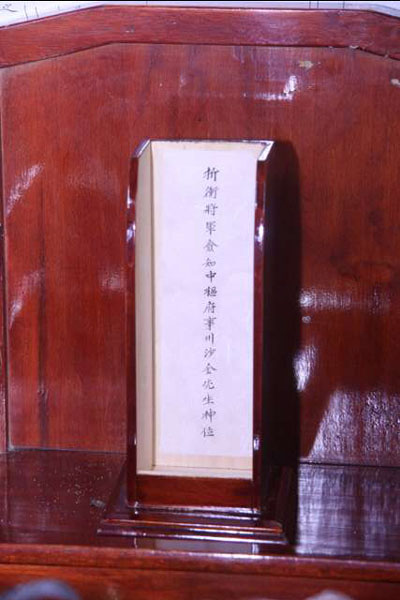 折衝將軍僉知中樞府事川沙金先生神位